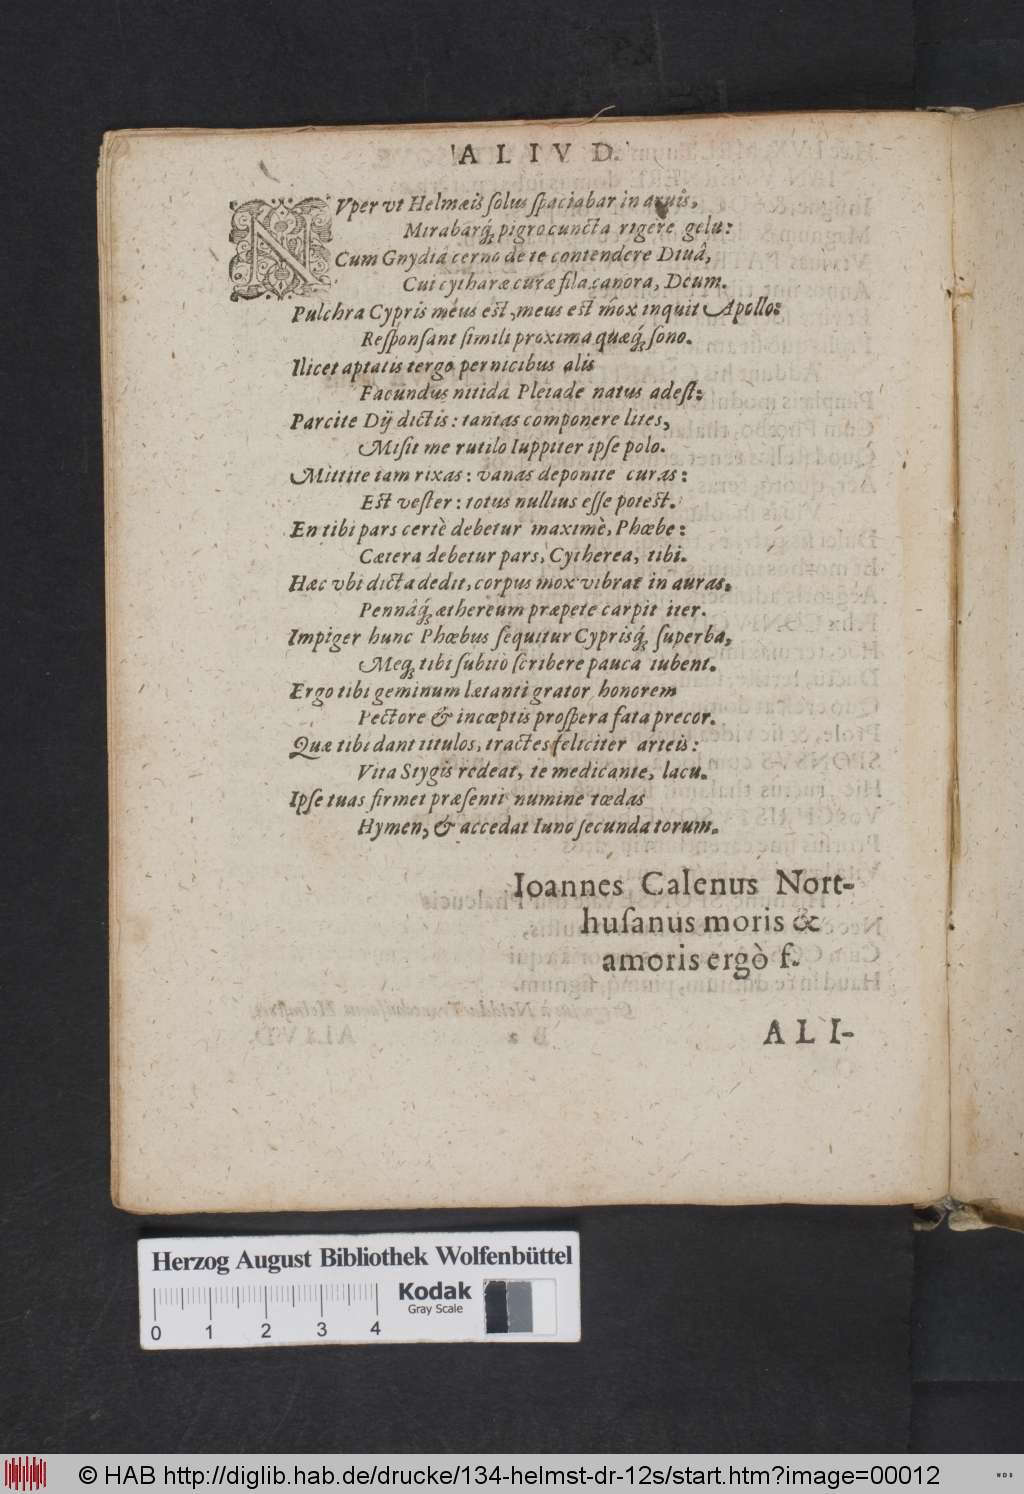 ALIVD.
NVper vt Helmæis ſolus ſpaciabar in aruis,
Mirabarq́; pigro cuncta rigere gelu:
Cum Gnydiâ cerno de te contendere Diuâ,
Cui cytharæ curæ fila canora, Deum.
Pulchra Cypris meus est, meus est mox inquit Apollo:
Reſponſant ſimili proxima quæq́; ſono.
Ilicet aptatis tergo pernicibus alis
Facundus nitida Pleiade natus adeſt:
Parcite Dij dictis: tantas componere lites,
Miſit me rutilo Iuppiter ipſe polo.
Mittite iam rixas: vanas deponite curas:
Est veſter: totus nullius eſſe potest.
En tibi pars certè debetur maximè, Phœbe:
Cætera debetur pars, Cytherea, tibi.
Hæc vbi dicta dedit, corpus mox vibrat in auras,
Pennâq́; æthereum præpete carpit iter.
Impiger hunc Phœbus ſequitur Cyprisq́; ſuperba,
Meq; tibi ſubitò ſcribere pauca iubent.
Ergo tibi geminum lætanti grator honorem
Pectore & incœptis proſpera fata precor.
Quæ tibi dant titulos, tractes feliciter arteis:
Vita Stygis redeat, te medicante, lacu.
Ipſe tuas firmet præſenti numine tœdas
Hymen, & accedat Iuno ſecunda torum.
Ioannes Calenus Nort-
huſanus moris &
amoris ergò f.
ALI-
Herzog August Bibliothek Wolfenbüttel
Kodak
Gray Scale
0 1 2 3 4
© HAB http://diglib.hab.de/drucke/134-helmst-dr-12s/start.htm?image=00012